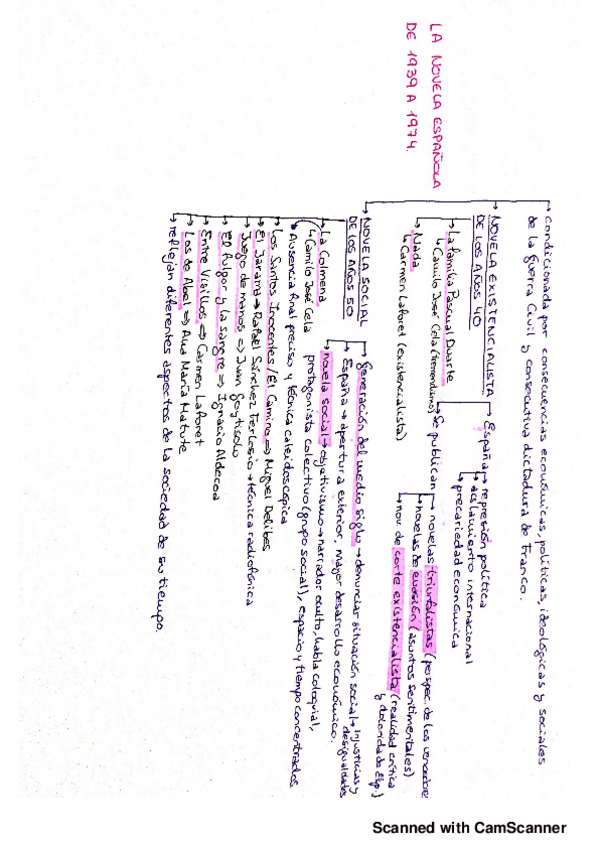 LA NOVELA ESPAÑOLA
DE 1939 A 1974.
→ condicionada por consecuencias económicas, políticas, ideológicas y sociales
de la guerra Civil y consecutiva dictadura de Franco.
→ NOVELA EXISTENCIALISTA
DE LOS AÑOS 40
→ España → represión política
→ aislamiento internacional
→ precariedad económica
→ La familia Pascual Duarte
↳ Camilo José Cela (tremendismo)
→ Nada
↳ Carmen Laforet (existencialista)
→ Se publican → novelas triunfalistas (perspec. de los vencedores
→ novelas de evasión (asuntos sentimentales).
→ nov. de corte existencialista (realidad crítica
y dolorida de Esp.)
→ NOVELA SOCIAL
DE LOS AÑOS 50
→ generación del medio siglo → denunciar situación social → injusticias y
desigualdades
→ España → apertura exterior, mayor desarrollo económico.
→ novela social → objetivismo → narrador oculto, habla coloquial,
protagonista colectivo (grupo social), espacio y tiempo concentrados
→ La Colmena
↳ Camilo José Cela
→ Ausencia final preciso y técnica caleidoscópica
→ Los Santos Inocentes / El Camino ⇒ Miguel Delibes
→ El Jarama → Rafael Sánchez Ferlosio → técnica radiofónica
→ Juego de manos ⇒ Juan Goytisolo
→ El fulgor y la sangre ⇒ Ignacio Aldecoa
→ Entre Visillos ⇒ Carmen Laforet
→ Los de Abel ⇒ Ana María Matute
→ reflejan diferentes aspectos de la sociedad de su tiempo.
Scanned with CamScanner